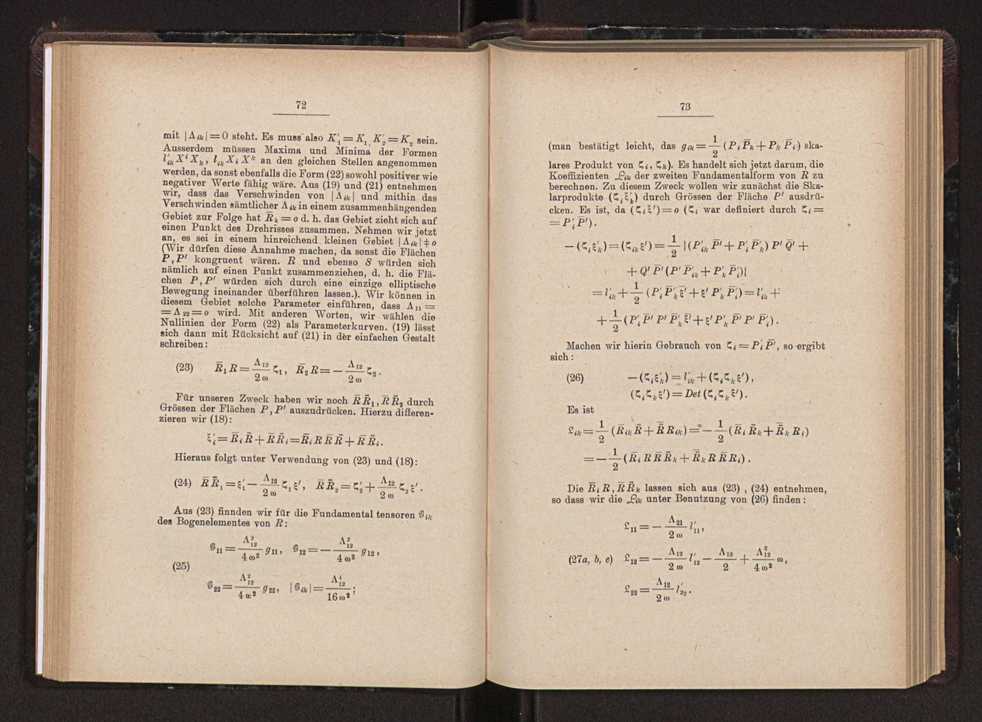 72
mit |Λik|=0 steht. Es muss also K'₁=K₁, K'₂=K₂ sein.
Ausserdem müssen Maxima und Minima der Formen
l'ik Xⁱ Xk, lik Xi Xᵏ an den gleichen Stellen angenommen
werden, da sonst ebenfalls die Form (22) sowohl positiver wie
negativer Werte fähig wäre. Aus (19) und (21) entnehmen
wir, dass das Verschwinden von |Λik| und mithin das
Verschwinden sämtlicher Λik in einem zusammenhängenden
Gebiet zur Folge hat R̄k = o d. h. das Gebiet zieht sich auf
einen Punkt des Drehrisses zusammen. Nehmen wir jetzt
an, es sei in einem hinreichend kleinen Gebiet |Λik| ≠ o
(Wir dürfen diese Annahme machen, da sonst die Flächen
P, P' kongruent wären. R und ebenso S würden sich
nämlich auf einen Punkt zusammenziehen, d. h. die Flä-
chen P, P' würden sich durch eine einzige elliptische
Bewegung ineinander überführen lassen.). Wir können in
diesem Gebiet solche Parameter einführen, dass Λ₁₁ =
= Λ₂₂ = o wird. Mit anderen Worten, wir wählen die
Nullinien der Form (22) als Parameterkurven. (19) lässt
sich dann mit Rücksicht auf (21) in der einfachen Gestalt
schreiben:
(23) R̄₁R = Λ₁₂/2ω ζ₁, R̄₂R = − Λ₁₂/2ω ζ₂.
Für unseren Zweck haben wir noch R̄R̄₁, R̄R̄₂ durch
Grössen der Flächen P, P' auszudrücken. Hierzu differen-
zieren wir (18):
ξ'i = R̄i R̄ + R̄R̄i = R̄i R R̄ R̄ + R̄ R̄i.
Hieraus folgt unter Verwendung von (23) und (18):
(24) R̄R̄₁ = ξ'₁ − Λ₁₂/2ω ζ₁ξ', R̄R̄₂ = ζ'₂ + Λ₁₂/2ω ζ₂ξ'.
Aus (23) finnden wir für die Fundamental tensoren 𝔊ik
des Bogenelementes von R:
𝔊₁₁ = Λ²₁₂/4ω² g₁₁, 𝔊₁₂ = − Λ²₁₂/4ω² g₁₂,
(25)
𝔊₂₂ = Λ²₁₂/4ω² g₂₂, |𝔊ik| = Λ⁴₁₂/16ω⁴;
73
(man bestätigt leicht, das gik = 1/2 (Pi P̄k + Pk P̄i) ska-
lares Produkt von ζi, ζk). Es handelt sich jetzt darum, die
Koeffizienten 𝔏ik der zweiten Fundamentalform von R zu
berechnen. Zu diesem Zweck wollen wir zunächst die Ska-
larprodukte (ζiξ'k) durch Grössen der Fläche P' ausdrü-
cken. Es ist, da (ζiξ') = o (ζi war definiert durch ζi =
= P'i P̄').
− (ζiξ'k) = (ζikξ') = 1/2 |(P'ik P̄' + P'i P̄'k) P' Q̄' +
+ Q' P̄' (P' P̄'ik + P'k P̄'i)|
= l'ik + 1/2 (P'i P̄'k ξ̄' + ξ' P'k P̄'i) = l'ik +
+ 1/2 (P'i P̄' P' P̄'k ξ̄' + ξ' P'k P̄' P' P̄'i).
Machen wir hierin Gebrauch von ζi = P'i P̄', so ergibt
sich:
(26) − (ζiξ'k) = l'ik + (ζiζkξ'),
(ζiζkξ') = Det (ζiζkξ').
Es ist
𝔏ik = 1/2 (R̄ik R̄ + R̄ Rik) = − 1/2 (R̄i R̄k + R̄k Ri)
= − 1/2 (R̄i R R̄ R̄k + R̄k R R̄ Ri).
Die R̄i R, R̄R̄k lassen sich aus (23), (24) entnehmen,
so dass wir die 𝔏ik unter Benutzung von (26) finden:
𝔏₁₁ = − Λ₂₁/2ω l'₁₁,
(27a, b, c) 𝔏₁₂ = − Λ₁₂/2ω l'₁₂ − Λ₁₂/2 + Λ²₁₂/4ω² ω,
𝔏₂₂ = Λ₁₂/2ω l'₂₂.